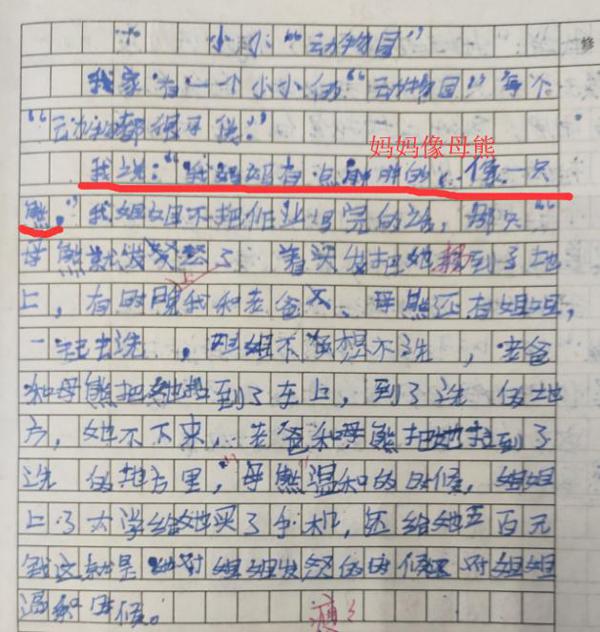 小小“动物园”
修
我家有一个小小的“动物园”每个
“动物都很可供！”
妈妈像母熊
我说：“我妈妈有点胖胖的，像一只
熊。”我姐姐不把作业写完的话，那只“
母熊就发怒了着头发把她到了地
上，有时陪我和老爸、母熊还有姐姐，
一起去洗，姐姐不想不洗，老爸
和母熊把她拉到了车上，到了洗的地
方，她不下来，老爸和母熊把她拉到了
洗的地方里，母熊温和的时候，姐姐
上了大学给她买了手机，还给她五百元
我这就是她对姐姐发怒的时候对姐姐
温和时候。